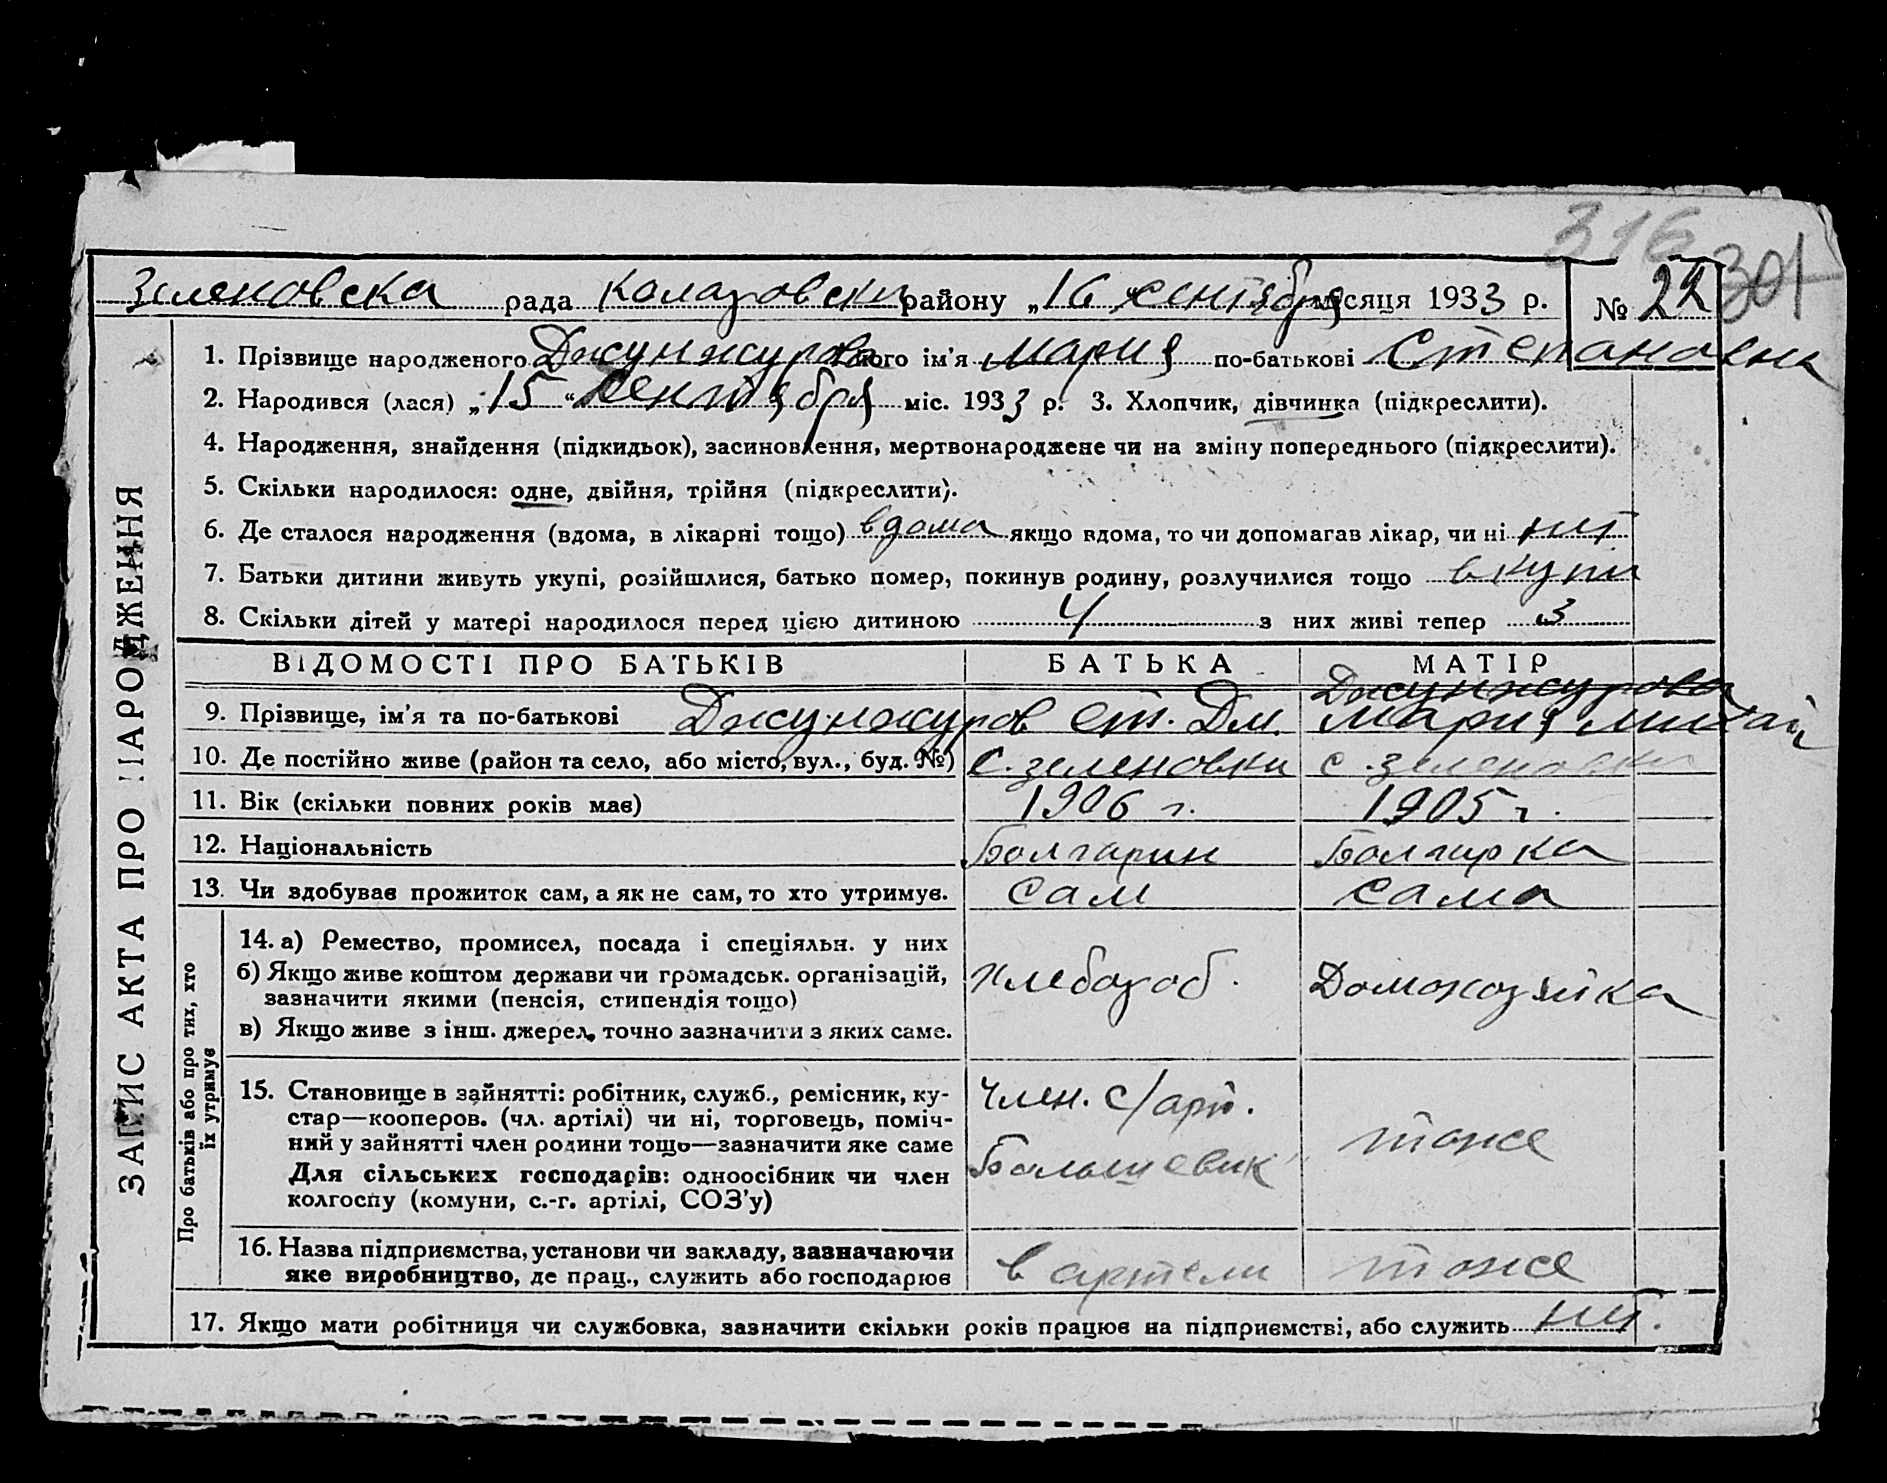 316
301
Зеленовска рада Коларовски району „16 сентября місяця 1933 р. № 22
ЗАПИС АКТА ПРО НАРОДЖЕННЯ
1. Прізвище народженого Джунжурова його ім'я Мария по-батькові Степановна
2. Народився (лася) „15 “ Сентября міс. 1933 р. 3. Хлопчик, дівчинка (підкреслити).
4. Народження, знайдення (підкидьок), засиновлення, мертвонароджене чи на зміну попереднього (підкреслити).
5. Скільки народилося: одне, двійня, трійня (підкреслити).
6. Де сталося народження (вдома, в лікарні тощо) вдома якщо вдома, то чи допомагав лікар, чи ні нит
7. Батьки дитини живуть укупі, розійшлися, батько помер, покинув родину, розлучилися тощо вкупи
8. Скільки дітей у матері народилося перед цією дитиною 4 з них живі тепер 3
ВІДОМОСТІ ПРО БАТЬКІВ БАТЬКА МАТІР
9. Прізвище, ім'я та по-батькові Джунжуров Ст. Дм. Джунжурова Мария Михай
10. Де постійно живе (район та село, або місто, вул., буд. №) с. зеленовки с. зеленовки
11. Вік (скільки повних років має) 1906 г. 1905 г.
12. Національність Болгарин Болгарка
13. Чи здобував прожиток сам, а як не сам, то хто утримує. сам сама
Про батьків або про тих, хто їх утримує
14. а) Ремество, промисел, посада і спеціяльн. у них
б) Якщо живе коштом держави чи громадськ. організацій,
зазначити якими (пенсія, стипендія тощо)
в) Якщо живе з інш. джерел, точно зазначити з яких саме.
хлебороб. Домохозяйка
15. Становище в зайнятті: робітник, служб., ремісник, ку-
стар—кооперов. (чл. артілі) чи ні, торговець, поміч-
ний у зайнятті член родини тощо—зазначити яке саме
Для сільських господарів: одноосібник чи член
колгоспу (комуни, с.-г. артілі, СОЗ'у)
член. с/арт.
Большевик" тоже
16. Назва підприємства, установи чи закладу, зазначаючи
яке виробництво, де прац., служить або господарює
в артели тоже
17. Якщо мати робітниця чи службовка, зазначити скільки років працює на підприємстві, або служить нит.